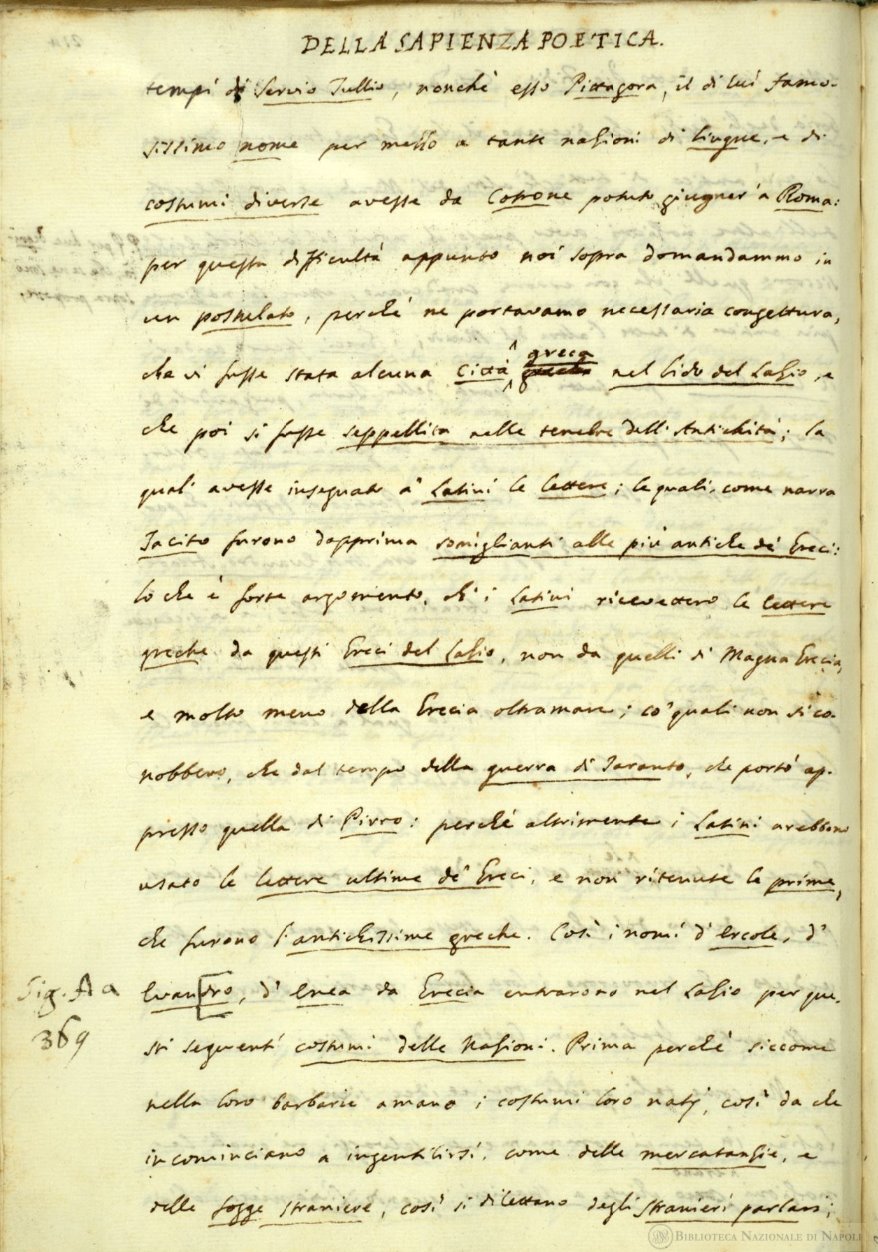 DELLA SAPIENZA POETICA.
tempi di Servio Tullio, nonchè esso Pittagora, il di lui famo-
sissimo nome per mezzo a tante nazioni di lingue, e di
costumi diverse avesse da Cotrone potuto giugner' a Roma:
per questa difficultà appunto noi sopra domandammo in
un postulato, perchè ne portavamo necessaria congettura,
che vi fusse stata alcuna città greca nel lido del Lazio, e
che poi si fusse seppellita nelle tenebre dell'Antichità; la
qual' avesse insegnato a' Latini le lettere; le quali, come narra
Tacito furono dapprima somiglianti alle più antiche de' Greci:
lo che è forte argomento, ch' i Latini ricevettero le lettere
greche da questi Greci del Lazio, non da quelli di Magna Grecia,
e molto meno della Grecia oltramare; co' quali non si co-
nobbero, che dal tempo della guerra di Taranto, che portò ap-
presso quella di Pirro: perchè altrimente i Latini arebbono
usato le lettere ultime de' Greci, e non ritenute le prime,
che furono l'antichissime greche. Così i nomi d'Ercole, d'
Sig. Aa
Evandro, d' Enea da Grecia entrarono nel Lazio per que-
369
sti seguenti costumi delle Nazioni. Prima perchè siccome
nella loro barbarie amano i costumi loro natj, così da che
incominciano a ingentilirsi, come delle mercatanzie, e
delle fogge straniere, così si dilettano degli stranieri parlari;
BIBLIOTECA NAZIONALE DI NAPOLI